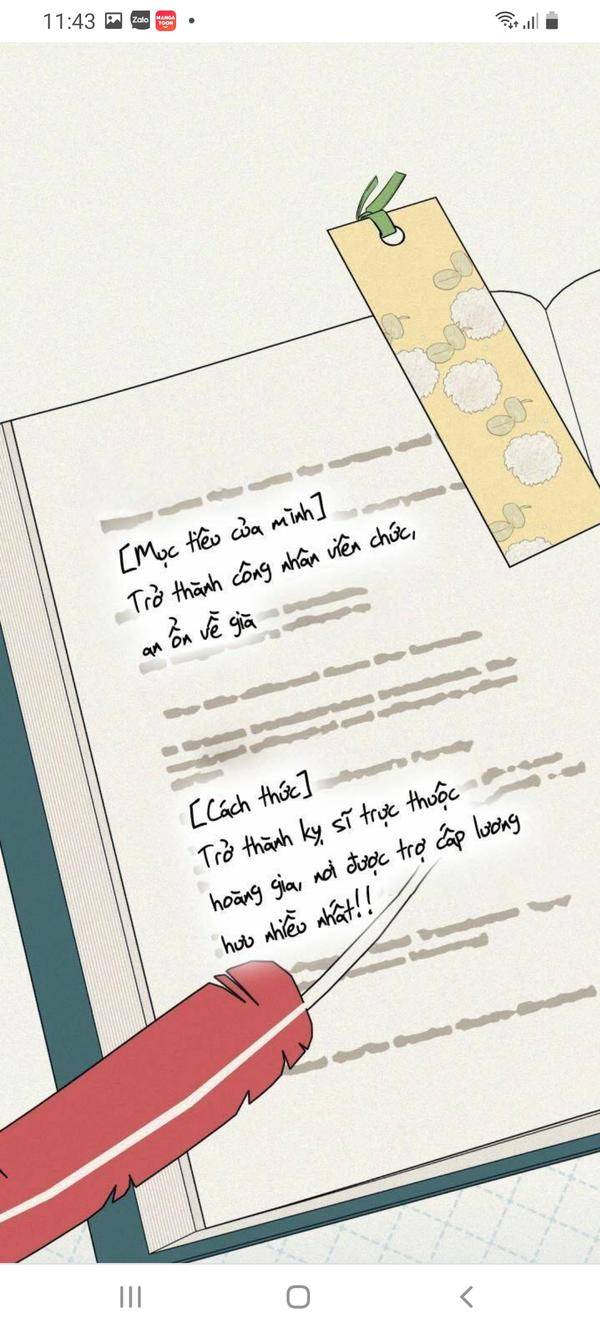 11:43
Zalo
MANGA
TOON
[Mục tiêu của mình]
Trở thành công nhân viên chức,
an ổn về già
[Cách thức]
Trở thành kỵ sĩ trực thuộc
hoàng gia, nơi được trợ cấp lương
hưu nhiều nhất!!